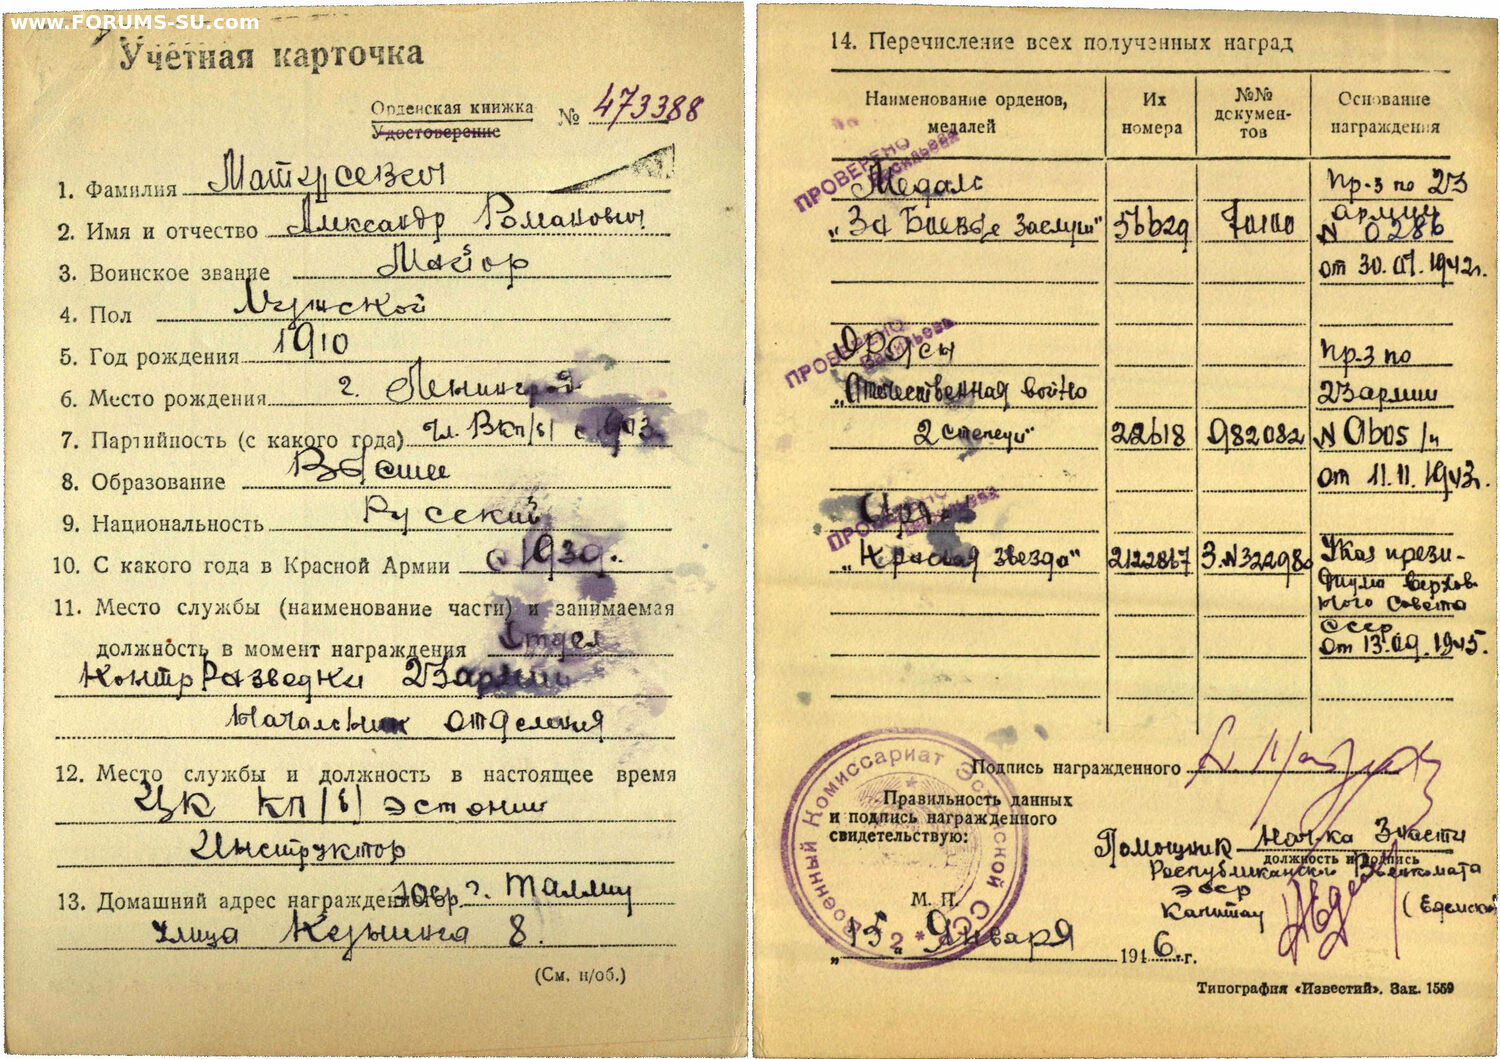 www.FORUMS-SU.com
Учётная карточка
Орденская книжка
Удостоверение
№ 473388
1. Фамилия Матусевич
2. Имя и отчество Александр Романович
3. Воинское звание Майор
4. Пол Мужской
5. Год рождения 1910
6. Место рождения г. Ленинград
7. Партийность (с какого года) чл. ВКП/б/ с
8. Образование Высшее
9. Национальность Русский
10. С какого года в Красной Армии с 1939г.
11. Место службы (наименование части) и занимаемая
должность в момент награждения Отдел
контрразведки 23 армии
Начальник отделения
12. Место службы и должность в настоящее время
ЦК КП/б/ Эстонии
Инструктор
13. Домашний адрес награжденного гор. Таллин
улица 8.
(См. н/об.)
14. Перечисление всех полученных наград
Наименование орденов, медалей
Их номера
№№ документов
Основание награждения
ПРОВЕРЕНО
Васильева
Медаль
„За Боевые Заслуги" 56629
Пр-з по 23
армии
N 0286
от 30.07.1942г.
ПРОВЕРЕНО
Васильева
Орден
„Отечественная война
2 степени" 22618 982082
Пр-з по
23 армии
N 0605/н
от 11.11.1943г.
ПРОВЕРЕНО
Васильева
„Красная звезда" 2122867 З.N 322980
Указ прези-
диума Верхов
ного Совета
СССР
от 13.09.1945.
Подпись награжденного
Правильность данных
и подпись награжденного
свидетельствую:
Помощник нач-ка 3 части
должность и подпись
Республиканского Военкомата
ЭССР
Капитан
М. П.
Военный Комиссариат Эстонской ССР
„15" Января 1946 г.
Типография «Известий». Зак. 1559